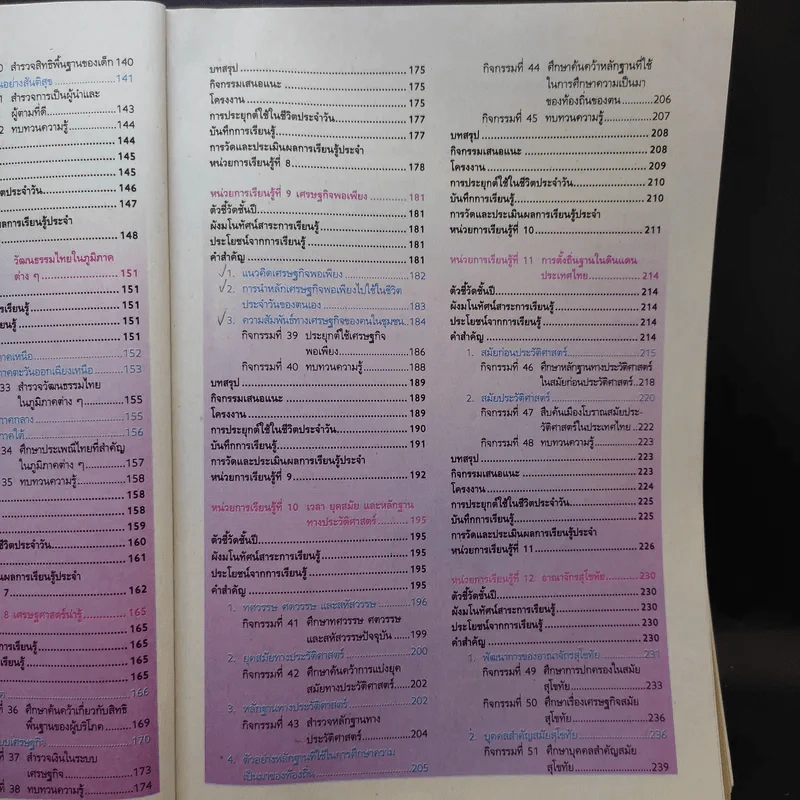 0 สำรวจสิทธิพื้นฐานของเด็ก 140
อย่างสันติสุข 141
1 สำรวจการเป็นผู้นำและ
ผู้ตามที่ดี 143
2 ทบทวนความรู้ 144
144
145
145
ประจำวัน 146
147
ผลการเรียนรู้ประจำ
148
วัฒนธรรมไทยในภูมิภาค
ต่าง ๆ 151
151
151
151
151
ภาคเหนือ 152
ภาคตะวันออกเฉียงเหนือ 153
33 สำรวจวัฒนธรรมไทย
ในภูมิภาคต่าง ๆ 155
ภาคกลาง 155
ภาคใต้ 156
34 ศึกษาประเพณีไทยที่สำคัญ
ในภูมิภาคต่าง ๆ 157
35 ทบทวนความรู้ 158
158
158
159
ชีวิตประจำวัน 160
161
ผลการเรียนรู้ประจำ
7 162
8 เศรษฐศาสตร์น่ารู้ 165
165
165
165
165
166
ที่ 36 ศึกษาค้นคว้าเกี่ยวกับสิทธิ
พื้นฐานของผู้บริโภค 169
170
ที่ 37 สำรวจเงินในระบบ
เศรษฐกิจ 173
ที่ 38 ทบทวนความรู้ 174
บทสรุป 175
กิจกรรมเสนอแนะ 175
โครงงาน 175
การประยุกต์ใช้ในชีวิตประจำวัน 177
บันทึกการเรียนรู้ 177
การวัดและประเมินผลการเรียนรู้ประจำ
หน่วยการเรียนรู้ที่ 8 178
หน่วยการเรียนรู้ที่ 9 เศรษฐกิจพอเพียง 181
ตัวชี้วัดชั้นปี 181
ผังมโนทัศน์สาระการเรียนรู้ 181
ประโยชน์จากการเรียนรู้ 181
คำสำคัญ 181
1. แนวคิดเศรษฐกิจพอเพียง 182
2. การนำหลักเศรษฐกิจพอเพียงไปใช้ในชีวิต
ประจำวันของตนเอง 183
3. ความสัมพันธ์ทางเศรษฐกิจของคนในชุมชน 184
กิจกรรมที่ 39 ประยุกต์ใช้เศรษฐกิจ
พอเพียง 186
กิจกรรมที่ 40 ทบทวนความรู้ 188
บทสรุป 189
กิจกรรมเสนอแนะ 189
โครงงาน 189
การประยุกต์ใช้ในชีวิตประจำวัน 190
บันทึกการเรียนรู้ 191
การวัดและประเมินผลการเรียนรู้ประจำ
หน่วยการเรียนรู้ที่ 9 192
หน่วยการเรียนรู้ที่ 10 เวลา ยุคสมัย และหลักฐาน
ทางประวัติศาสตร์ 195
ตัวชี้วัดชั้นปี 195
ผังมโนทัศน์สาระการเรียนรู้ 195
ประโยชน์จากการเรียนรู้ 195
คำสำคัญ 195
1. ทศวรรษ ศตวรรษ และสหัสวรรษ 196
กิจกรรมที่ 41 ศึกษาทศวรรษ ศตวรรษ
และสหัสวรรษปัจจุบัน 199
2. ยุคสมัยทางประวัติศาสตร์ 200
กิจกรรมที่ 42 ศึกษาค้นคว้าการแบ่งยุค
สมัยทางประวัติศาสตร์ 202
3. หลักฐานทางประวัติศาสตร์ 202
กิจกรรมที่ 43 สำรวจหลักฐานทาง
ประวัติศาสตร์ 204
4. ตัวอย่างหลักฐานที่ใช้ในการศึกษาความ
เป็นมาของท้องถิ่น 205
กิจกรรมที่ 44 ศึกษาค้นคว้าหลักฐานที่ใช้
ในการศึกษาความเป็นมา
ของท้องถิ่นของตน 206
กิจกรรมที่ 45 ทบทวนความรู้ 207
บทสรุป 208
กิจกรรมเสนอแนะ 208
โครงงาน 209
การประยุกต์ใช้ในชีวิตประจำวัน 210
บันทึกการเรียนรู้ 210
การวัดและประเมินผลการเรียนรู้ประจำ
หน่วยการเรียนรู้ที่ 10 211
หน่วยการเรียนรู้ที่ 11 การตั้งถิ่นฐานในดินแดน
ประเทศไทย 214
ตัวชี้วัดชั้นปี 214
ผังมโนทัศน์สาระการเรียนรู้ 214
ประโยชน์จากการเรียนรู้ 214
คำสำคัญ 214
1. สมัยก่อนประวัติศาสตร์ 215
กิจกรรมที่ 46 ศึกษาหลักฐานทางประวัติศาสตร์
ในสมัยก่อนประวัติศาสตร์ 218
2. สมัยประวัติศาสตร์ 220
กิจกรรมที่ 47 สืบค้นเมืองโบราณสมัยประ-
วัติศาสตร์ในประเทศไทย 222
กิจกรรมที่ 48 ทบทวนความรู้ 223
บทสรุป 223
กิจกรรมเสนอแนะ 223
โครงงาน 224
การประยุกต์ใช้ในชีวิตประจำวัน 225
บันทึกการเรียนรู้ 225
การวัดและประเมินผลการเรียนรู้ประจำ
หน่วยการเรียนรู้ที่ 11 226
หน่วยการเรียนรู้ที่ 12 อาณาจักรสุโขทัย 230
ตัวชี้วัดชั้นปี 230
ผังมโนทัศน์สาระการเรียนรู้ 230
ประโยชน์จากการเรียนรู้ 230
คำสำคัญ 230
1. พัฒนาการของอาณาจักรสุโขทัย 231
กิจกรรมที่ 49 ศึกษาการปกครองในสมัย
สุโขทัย 233
กิจกรรมที่ 50 ศึกษาเรื่องเศรษฐกิจสมัย
สุโขทัย 236
2. บุคคลสำคัญสมัยสุโขทัย 236
กิจกรรมที่ 51 ศึกษาบุคคลสำคัญสมัย
สุโขทัย 239